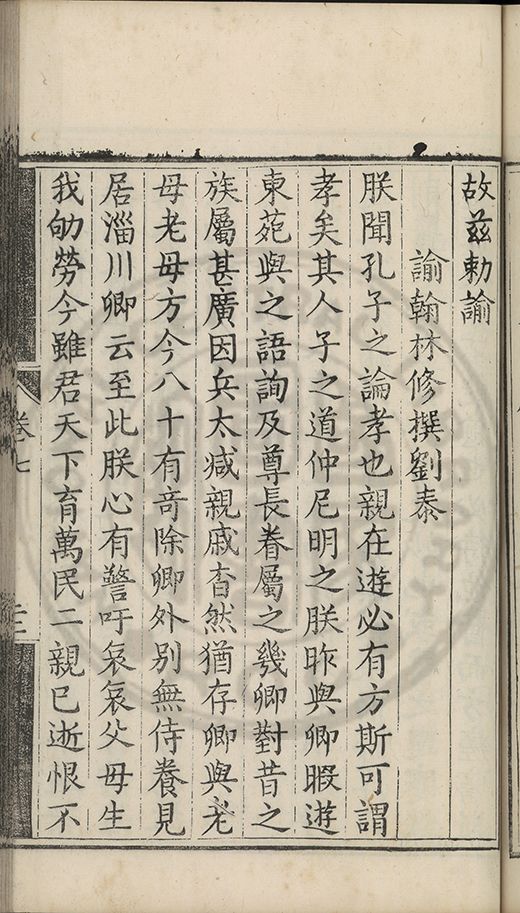 故茲勅諭
諭翰林修撰劉泰
朕聞孔子之論孝也親在遊必有方斯可謂
孝矣其人子之道仲尼明之朕昨與卿暇遊
東苑與之語詢及尊長眷屬之幾卿對昔之
族屬甚廣因兵太减親戚杳然猶存卿與老
母老母方今八十有奇除卿外別無侍養見
居淄川卿云至此朕心有警吁哀哀父母生
我劬勞今雖君天下育萬民二親已逝恨不
卷七